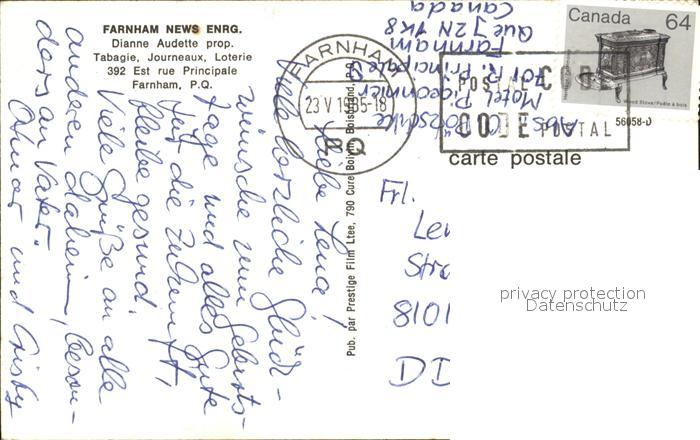 FARNHAM NEWS ENRG.
Dianne Audette prop.
Tabagie, Journeaux, Loterie
392 Est rue Principale
Farnham, P.Q.
Liebe Lena,
viele herzliche Glück-
wünsche zum Geburts-
tage und alles Gute
für die Zukunft,
bleibe gesund.
Viele Grüße an alle
anderen daheim, beson-
ders an Vater.
Otmar und
FARNHAM
23 V 1985-18
PQ
Pub. par Prestige Film Ltee, 790 Cure Boivin, Boisbriand, P.Q.
Canada 64
Wood Stove/Poêle à bois
POSTAL CODE
CODE POSTAL
56058-D
carte postale
Abs. C.
Motel Pigeonnier
701 R. Principale
Farnham
Que J2N 1K8
Canada
Frl.
Le
Str
8101
DD
privacy protection
Datenschutz